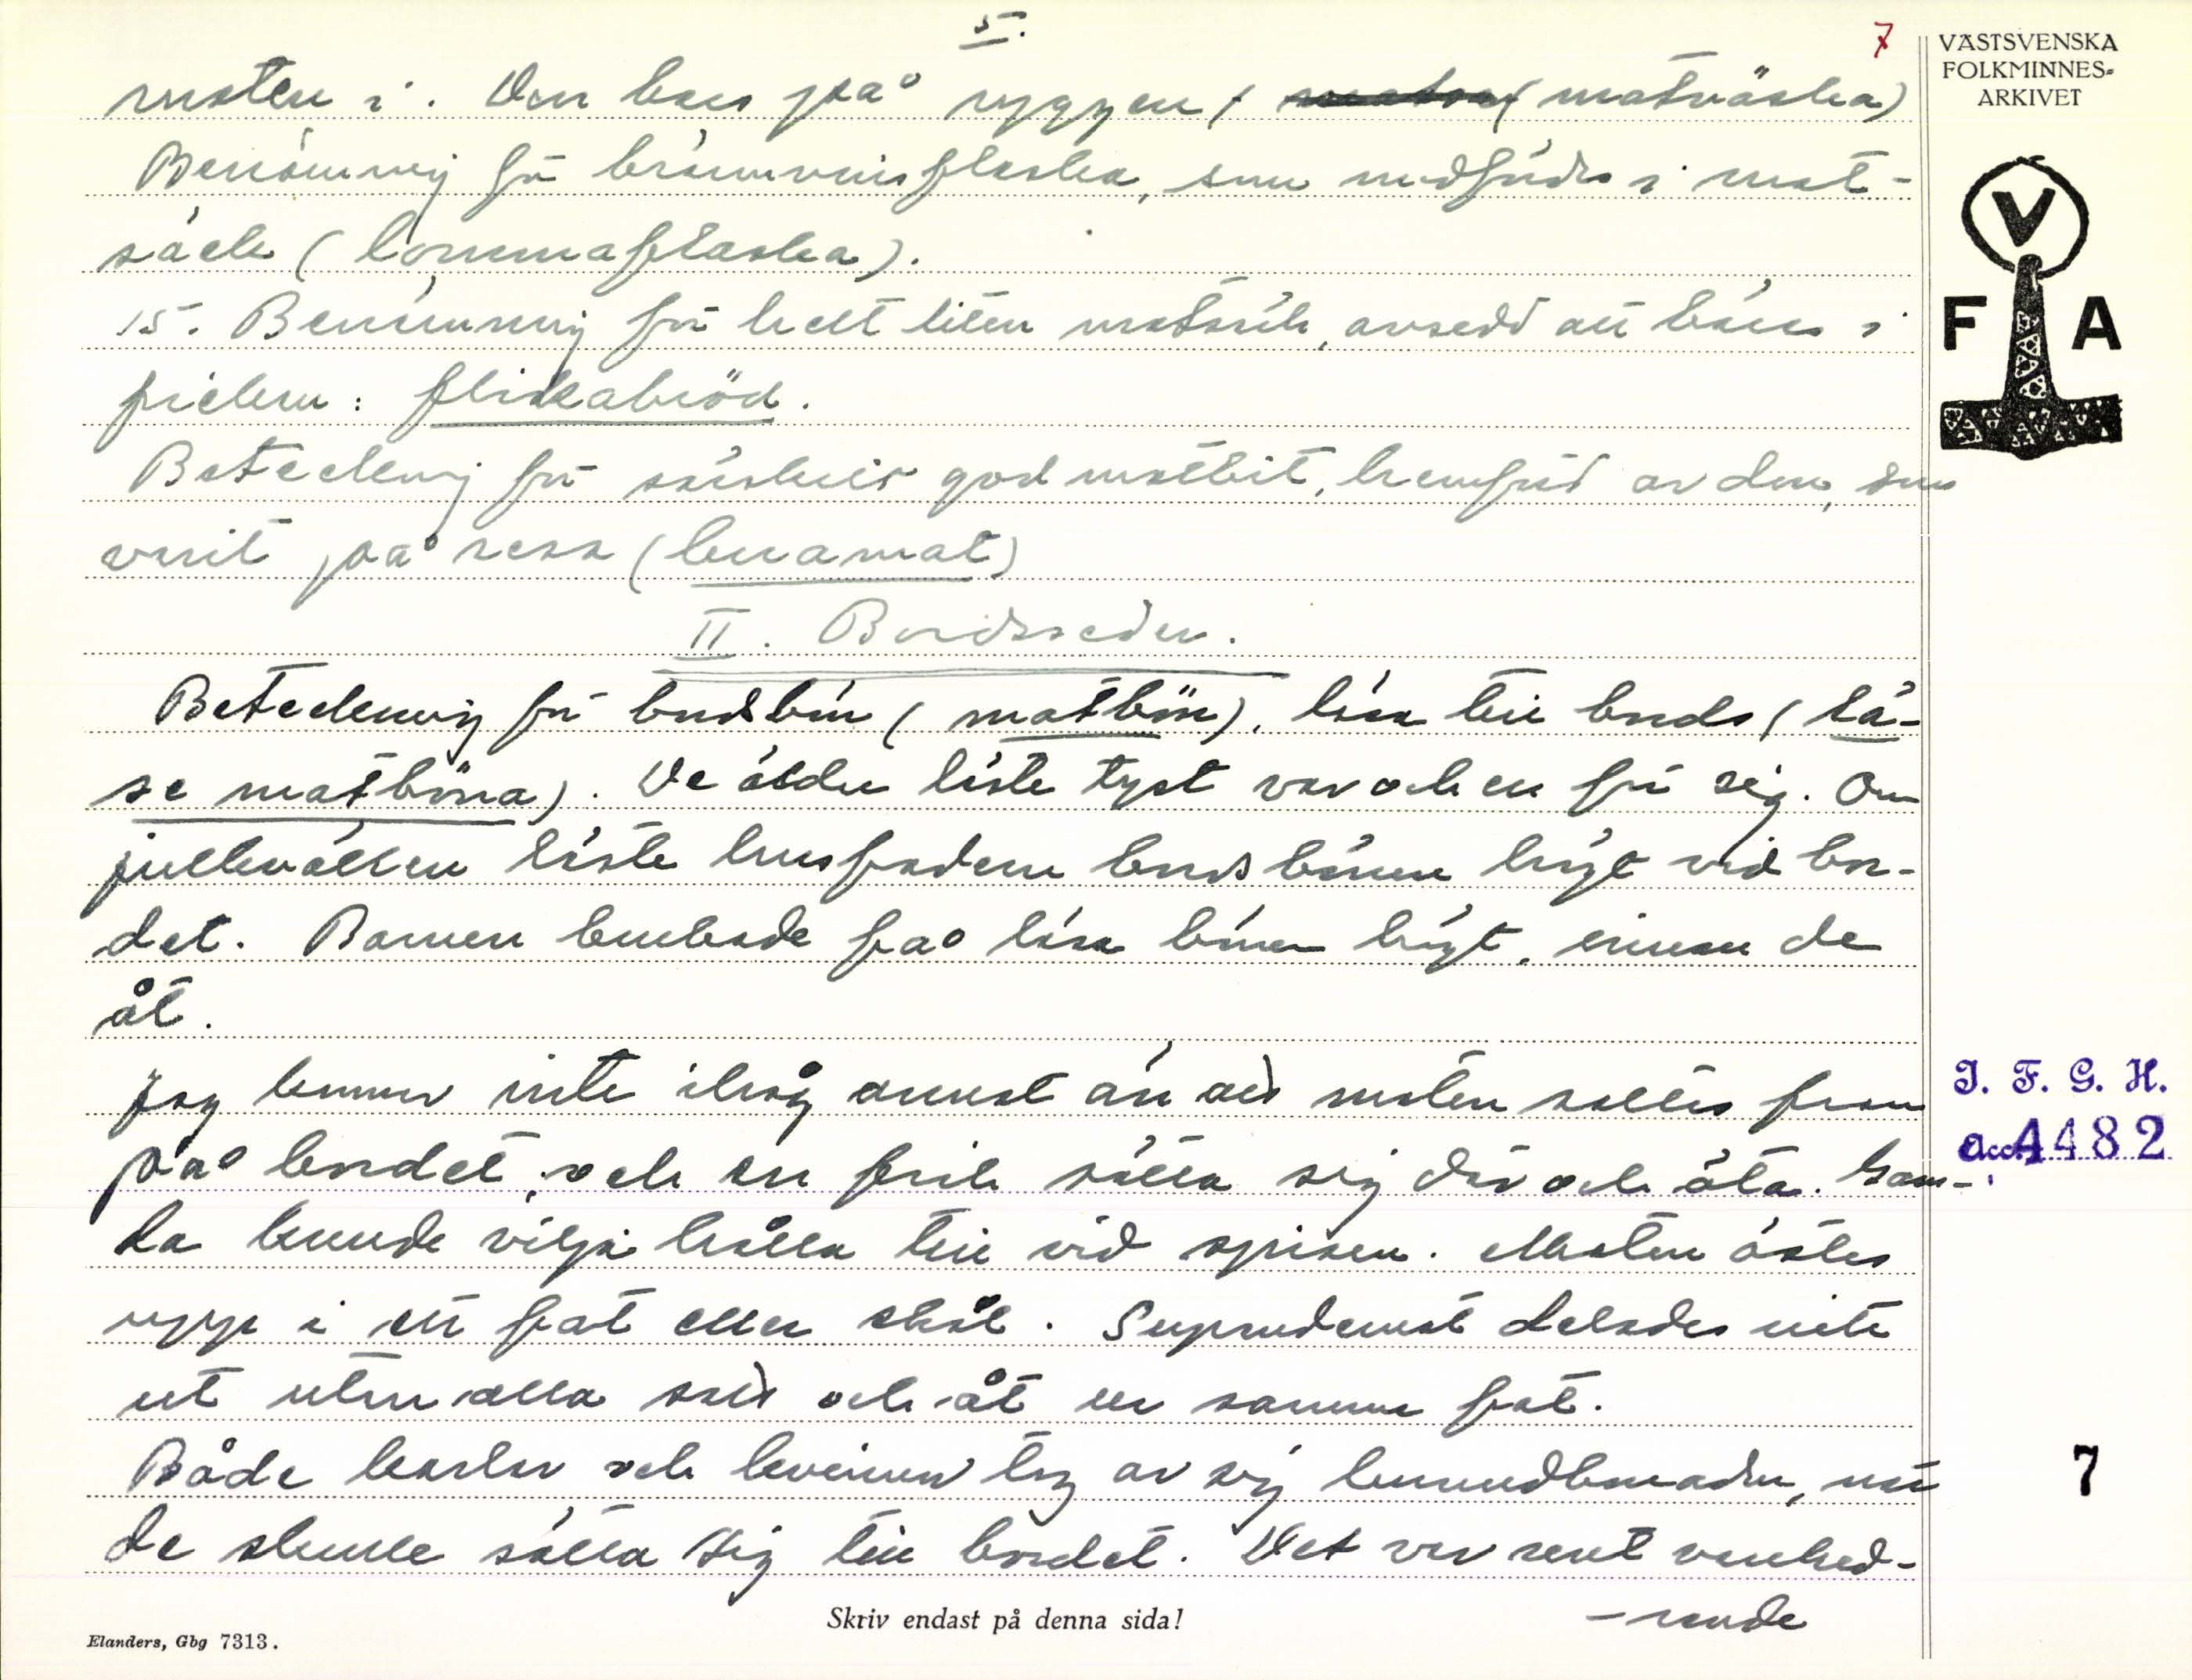 5.
7
VÄSTSVENSKA
FOLKMINNES-
ARKIVET
maten i. Den bars på ryggen ( matväska)
Benämning för brännvinsflaska, som medfördes i mat-
säck (lommaflaska).
15. Benämning för helt liten matsäck, avsedd att bäras i
fickan: flickabröd.
Beteckning för särskilt god matbit, hemförd av den, som
varit på resa (
mat)
II. Bordseder.
Beteckning för bordsbön (matbön), läsa till bords (lä-
se matböna). De äldre läste tyst var och en för sig. Om
julkvällen läste husfadern bordsbönen högt vid bor-
det. Barnen brukade få läsa bönen högt, innan de
åt.
Jag kommer inte ihåg annat än att maten sattes fram
på bordet, och en fick sätta sig där och äta. Gam-
la kunde vilja hålla till vid spisen. Maten östes
upp i ett fat eller skål. Supandemat delades inte
ut utan alla satt och åt ur samma fat.
Både karlar och kvinnor tog av sig huvudbonaden, när
de skulle sätta sig till bordet. Det var rent vanhed-
-rande
V
F A
I. F. G. H.
Acc. 4482
7
Skriv endast på denna sida!
Elanders, Gbg 7313.